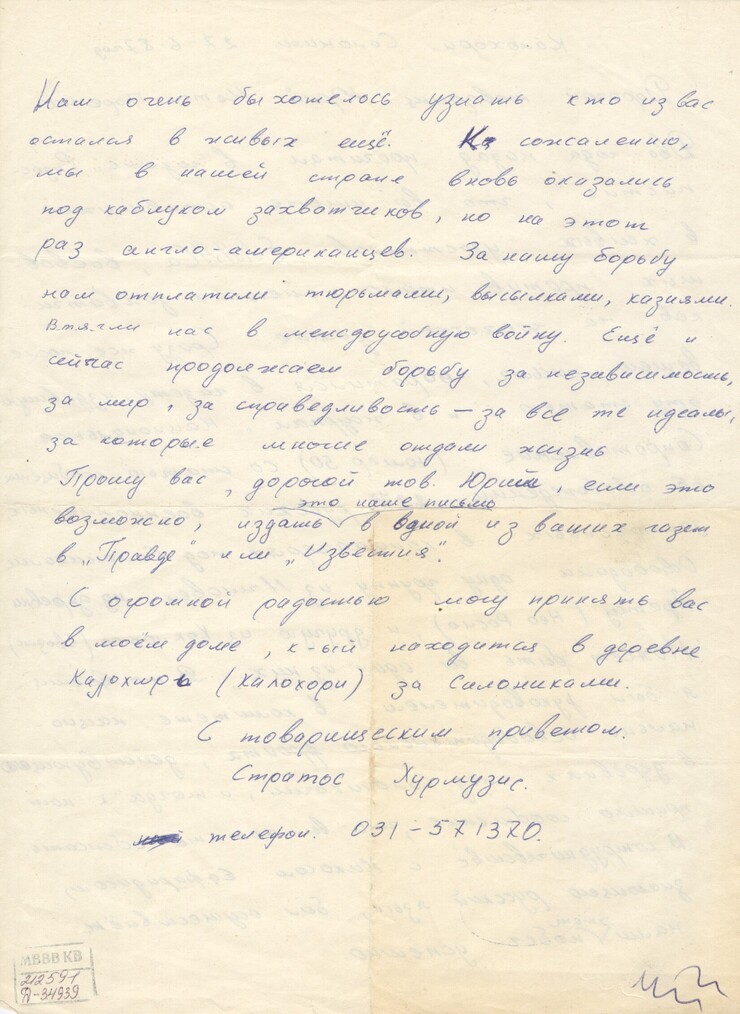 Нам очень бы хотелось узнать кто из вас
остался в живых ещё. К сожалению,
мы в нашей стране вновь оказались
под каблуком захватчиков, но на этот
раз англо-американцев. За нашу борьбу
нам отплатили тюрьмами, высылками, казнями.
Втягли нас в междоусобную войну. Ещё и
сейчас продолжаем борьбу за независимость,
за мир, за справедливость — за все те идеалы,
за которые многие отдали жизнь
Прошу вас, дорогой тов. Юрий, если это
это наше письмо
возможно, издать в одной из ваших газет
в „Правде" или „Известия".
С огромной радостью могу принять вас
в моём доме, к-ый находится в деревне
(Халохори) за Салониками.
С товарищеским приветом.
Стратос Хурмузис.
телефон. 031-571370.
МВВВ КВ
212591
Д-34939